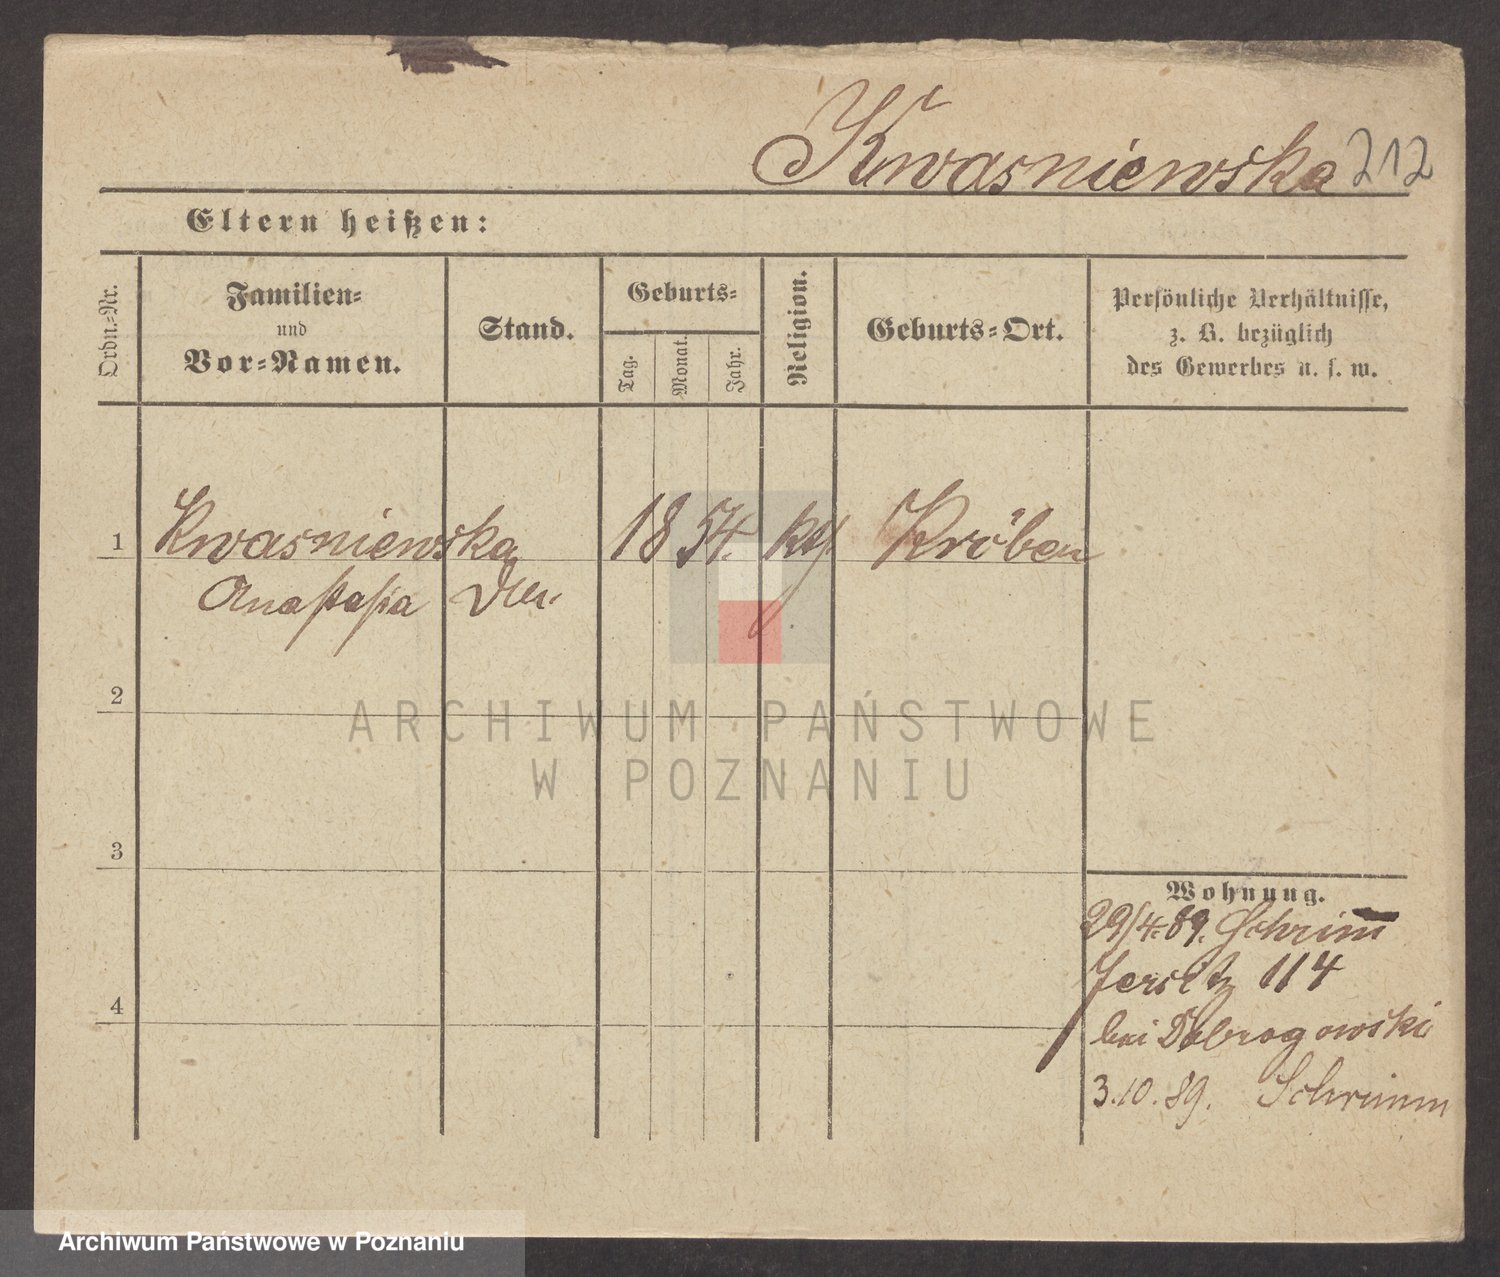 Kwasniewska 212
Eltern heißen:
Ordn.-Nr.
Familien-
und
Vor-Namen.
Stand.
Geburts-
Tag.
Monat.
Jahr.
Religion.
Geburts-Ort.
Persönliche Verhältnisse,
z. B. bezüglich
des Gewerbes u. s. w.
1 Kwasniewska 18 54. kth Kröben
Anastasia
2
3
4
Wohnung.
29/4.89. Schrimm
Jersitz 114
bei Dobrogowski
3.10.89. Schrimm
ARCHIWUM PAŃSTWOWE
W POZNANIU
Archiwum Państwowe w Poznaniu